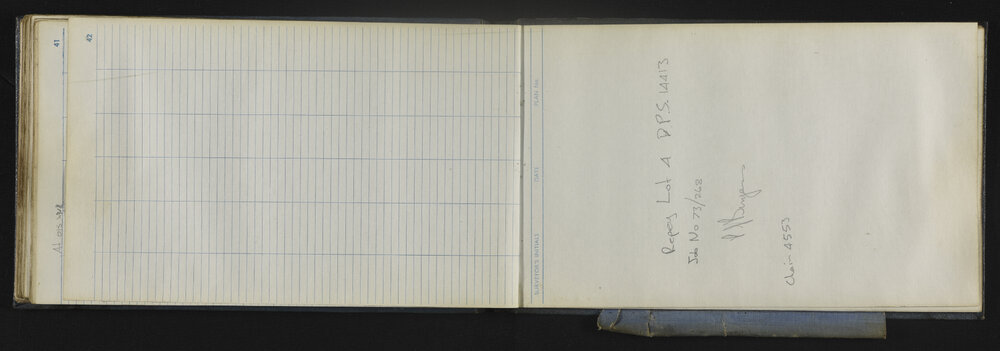 41
42
SURVEYOR'S INITIALS DATE PLAN No.
Repeg Lot 4 D.P.S. 14413
Job No 73/268
Chain 4553